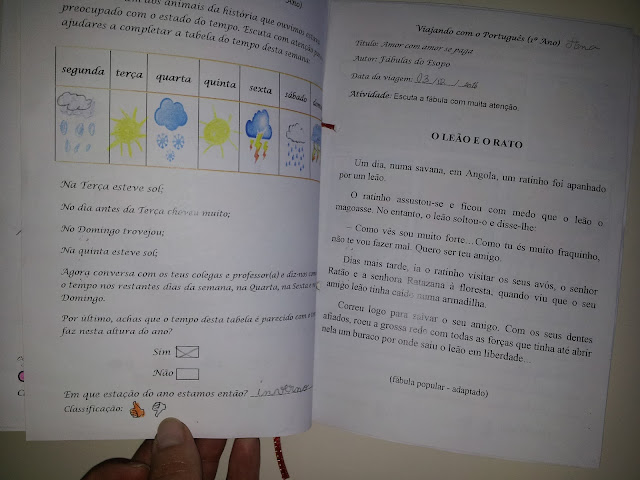 no)
dos animais da história que ouvimos
preocupado com o estado do tempo. Escuta com atenção
ajudares a completar a tabela do tempo desta semana.
segunda terça quarta quinta sexta sábado
Na Terça esteve sol;
No dia antes da Terça choveu muito;
No Domingo trovejou;
Na quinta esteve sol;
Agora conversa com os teus colegas e professor(a) e diz-nos
o tempo nos restantes dias da semana, na Quarta, na Sexta
Domingo.
Por último, achas que o tempo desta tabela é parecido com
faz nesta altura do ano?
Sim
Não
Em que estação do ano estamos então? inverno
Classificação:
Viajando com o Português (1º Ano)
Título: Amor com amor se paga
Autor: Fábulas do Esopo
Data da viagem: 03
Atividade: Escuta a fábula com muita atenção.
O LEÃO E O RATO
Um dia, numa savana, em Angola, um ratinho foi apanhado
por um leão.
O ratinho assustou-se e ficou com medo que o leão o
magoasse. No entanto, o leão soltou-o e disse-lhe:
– Como vês sou muito forte…Como tu és muito fraquinho,
não te vou fazer mal. Quero ser teu amigo.
Dias mais tarde, ia o ratinho visitar os seus avós, o senhor
Ratão e a senhora Ratazana à floresta, quando viu que o seu
amigo leão tinha caído numa armadilha.
Correu logo para salvar o seu amigo. Com os seus dentes
afiados, roeu a grossa rede com todas as forças que tinha até abrir
nela um buraco por onde saiu o leão em liberdade…
(fábula popular - adaptado)